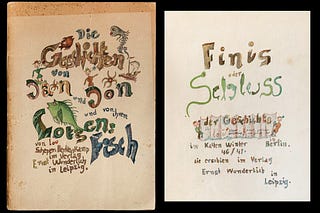 Die
Geschichten
von
Jan und Jon
und von ihrem
Lotsen:
Fisch
von
im Verlag
Ernst Wunderlich
in Leipzig.
Finis
oder
Schluss
der Geschichte
im Kalten Winter Berlin.
46/47.
sie erschien im Verlag
Ernst Wunderlich
in
Leipzig.